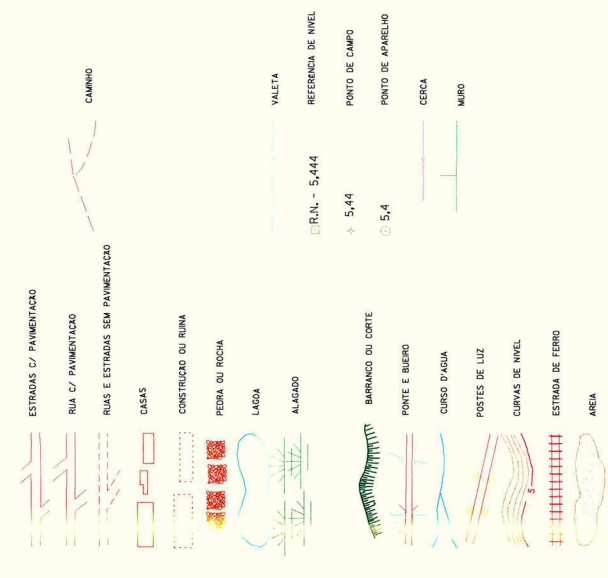 ESTRADAS C/ PAVIMENTACÃO
RUA C/ PAVIMENTACÃO
RUAS E ESTRADAS SEM PAVIMENTACÃO
CASAS
CONSTRUCÃO OU RUINA
PEDRA OU ROCHA
LAGOA
ALAGADO
BARRANCO OU CORTE
PONTE E BUEIRO
CURSO D'AGUA
POSTES DE LUZ
CURVAS DE NIVEL
5
ESTRADA DE FERRO
AREIA
CAMINHO
VALETA
R.N. - 5,444 REFERENCIA DE NIVEL
5,44 PONTO DE CAMPO
5,4 PONTO DE APARELHO
CERCA
MURO